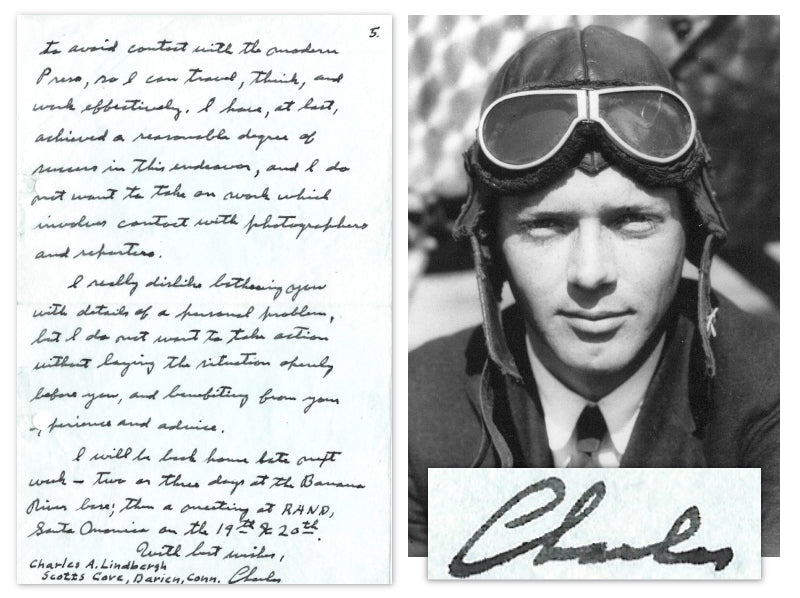 5.
to avoid contact with the modern
Press, so I can travel, think, and
work effectively. I have, at last,
achieved a reasonable degree of
success in this endeavor, and I do
not want to take on work which
involves contact with photographers
and reporters.
I really dislike bothering you
with details of a personal problem,
but I do not want to take action
without laying the situation openly
before you, and benefiting from your
perience and advice.
I will be back home late next
week — two or three days at the Banana
River base; then a meeting at RAND,
Santa Monica on the 19th & 20th.
With best wishes,
Charles A. Lindbergh
Scotts Cove, Darien, Conn. Charles
Charles